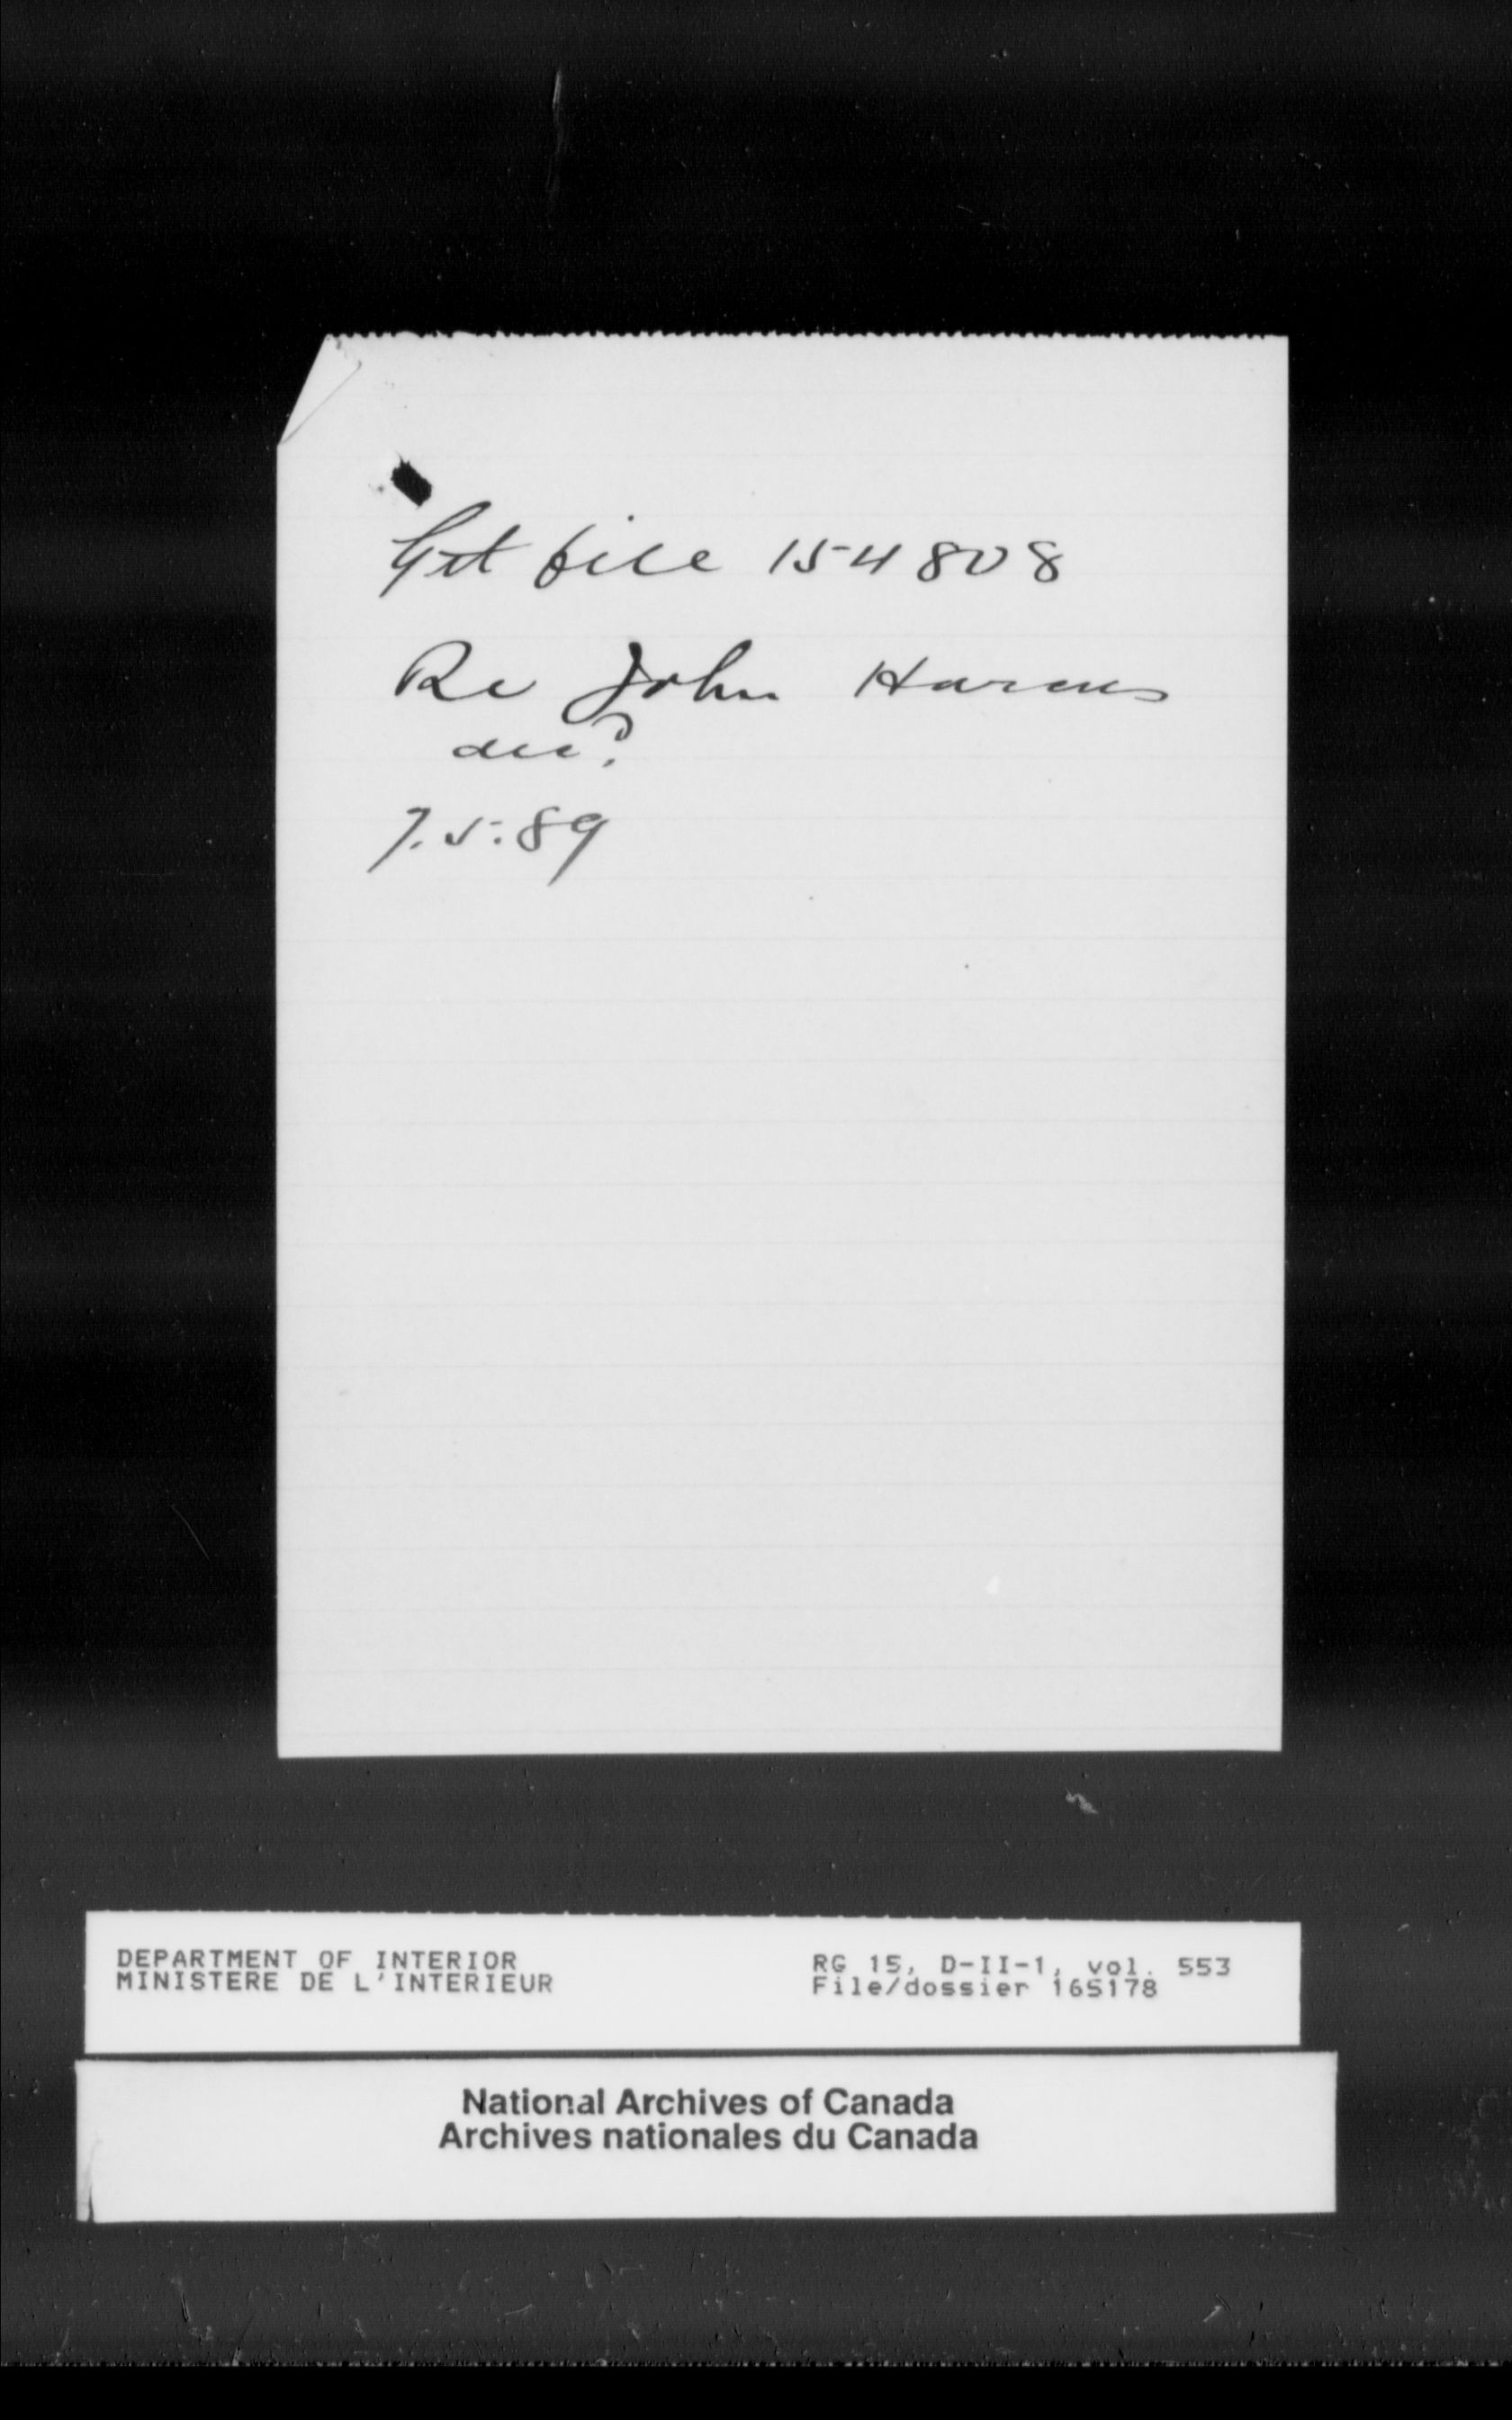 Get file 154808
Re John
dec?
7.5.89
DEPARTMENT OF INTERIOR
MINISTERE DE L'INTERIEUR
RG 15, D-II-1, vol. 553
File/dossier 165178
National Archives of Canada
Archives nationales du Canada